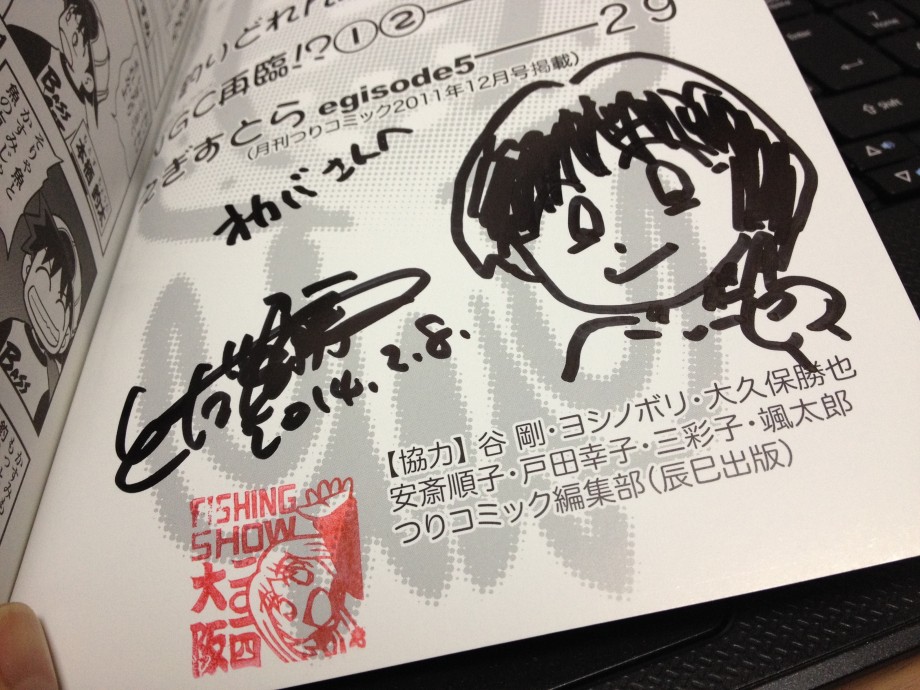 釣いどれ
GC再臨!?①②
29
ぎすとら egisode5
(月刊つりコミック2011年12月号掲載)
さんへ
2014.2.8.
【協力】谷 剛・ヨシノボリ・大久保勝也
安斎順子・戸田幸子・三彩子・颯太郎
つりコミック編集部(辰巳出版)
FISHING
SHOW
大阪
二〇一四
そりゃ魚と
Boss
Boss